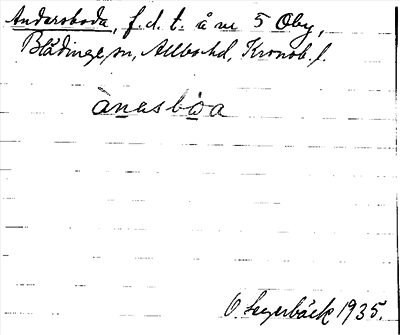 Andersboda, f. d. t. å nr 5 Oby,
Blädinge sn, Allbo hd, Kronob. l.
ànasbòa
O. Leyerbäck 1935.